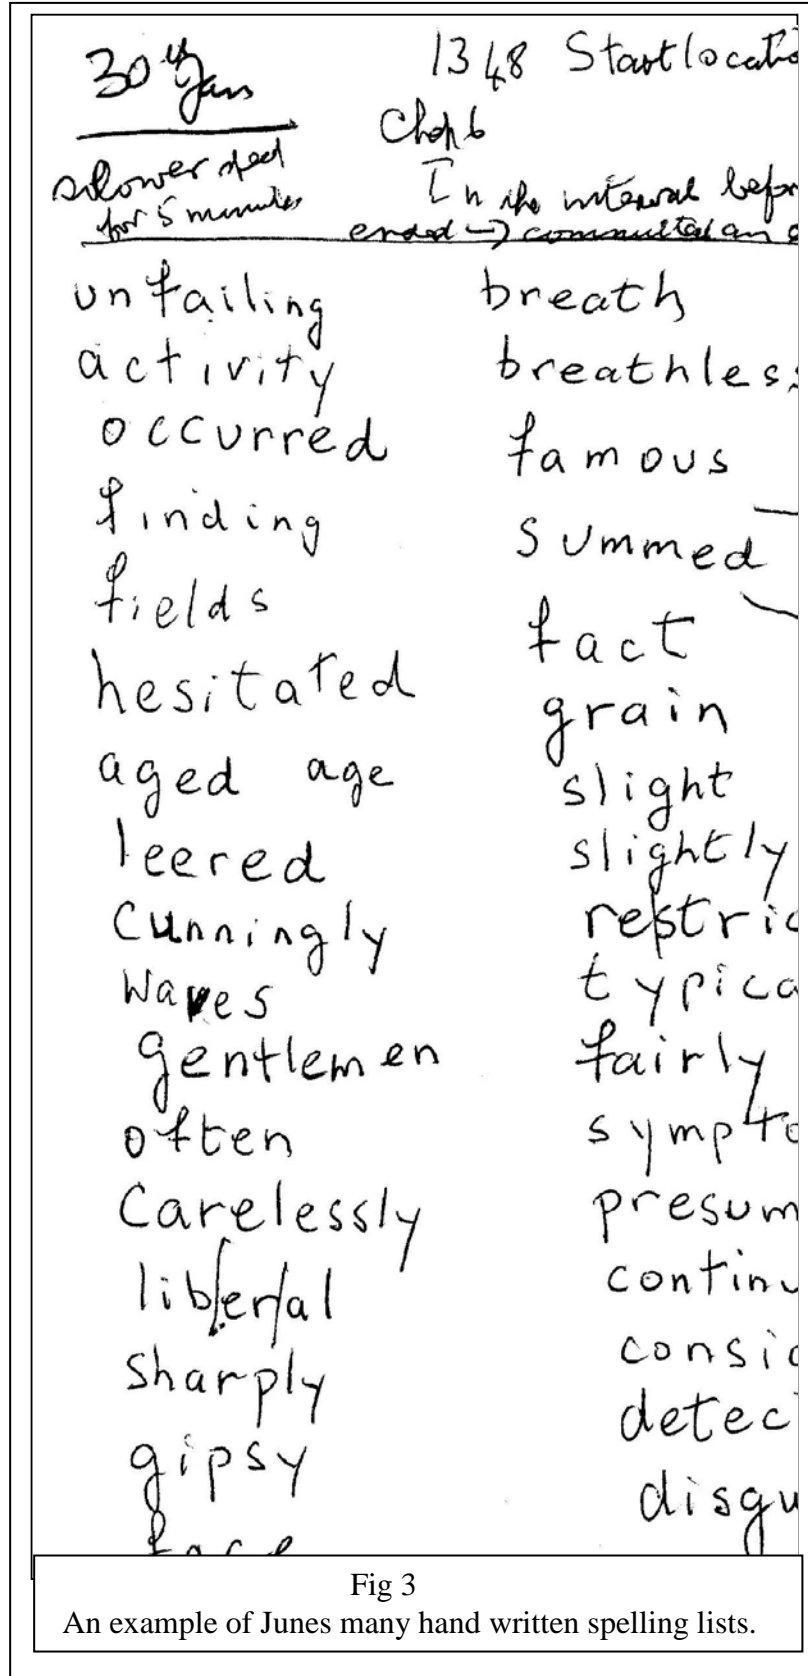 30th Jan
slower speed
for 5 minutes
1348 Start locatio
Chap 6
In the interval befor
ended → committed an
unfailing
activity
occurred
finding
fields
hesitated
aged age
leered
cunningly
waves
gentlemen
often
Carelessly
lib/er/al
sharply
gipsy
face
breath
breathless
famous
summed
fact
grain
slight
slightly
restric
typica
fairly
sympto
presum
continu
consid
detec
disgu
Fig 3
An example of Junes many hand written spelling lists.